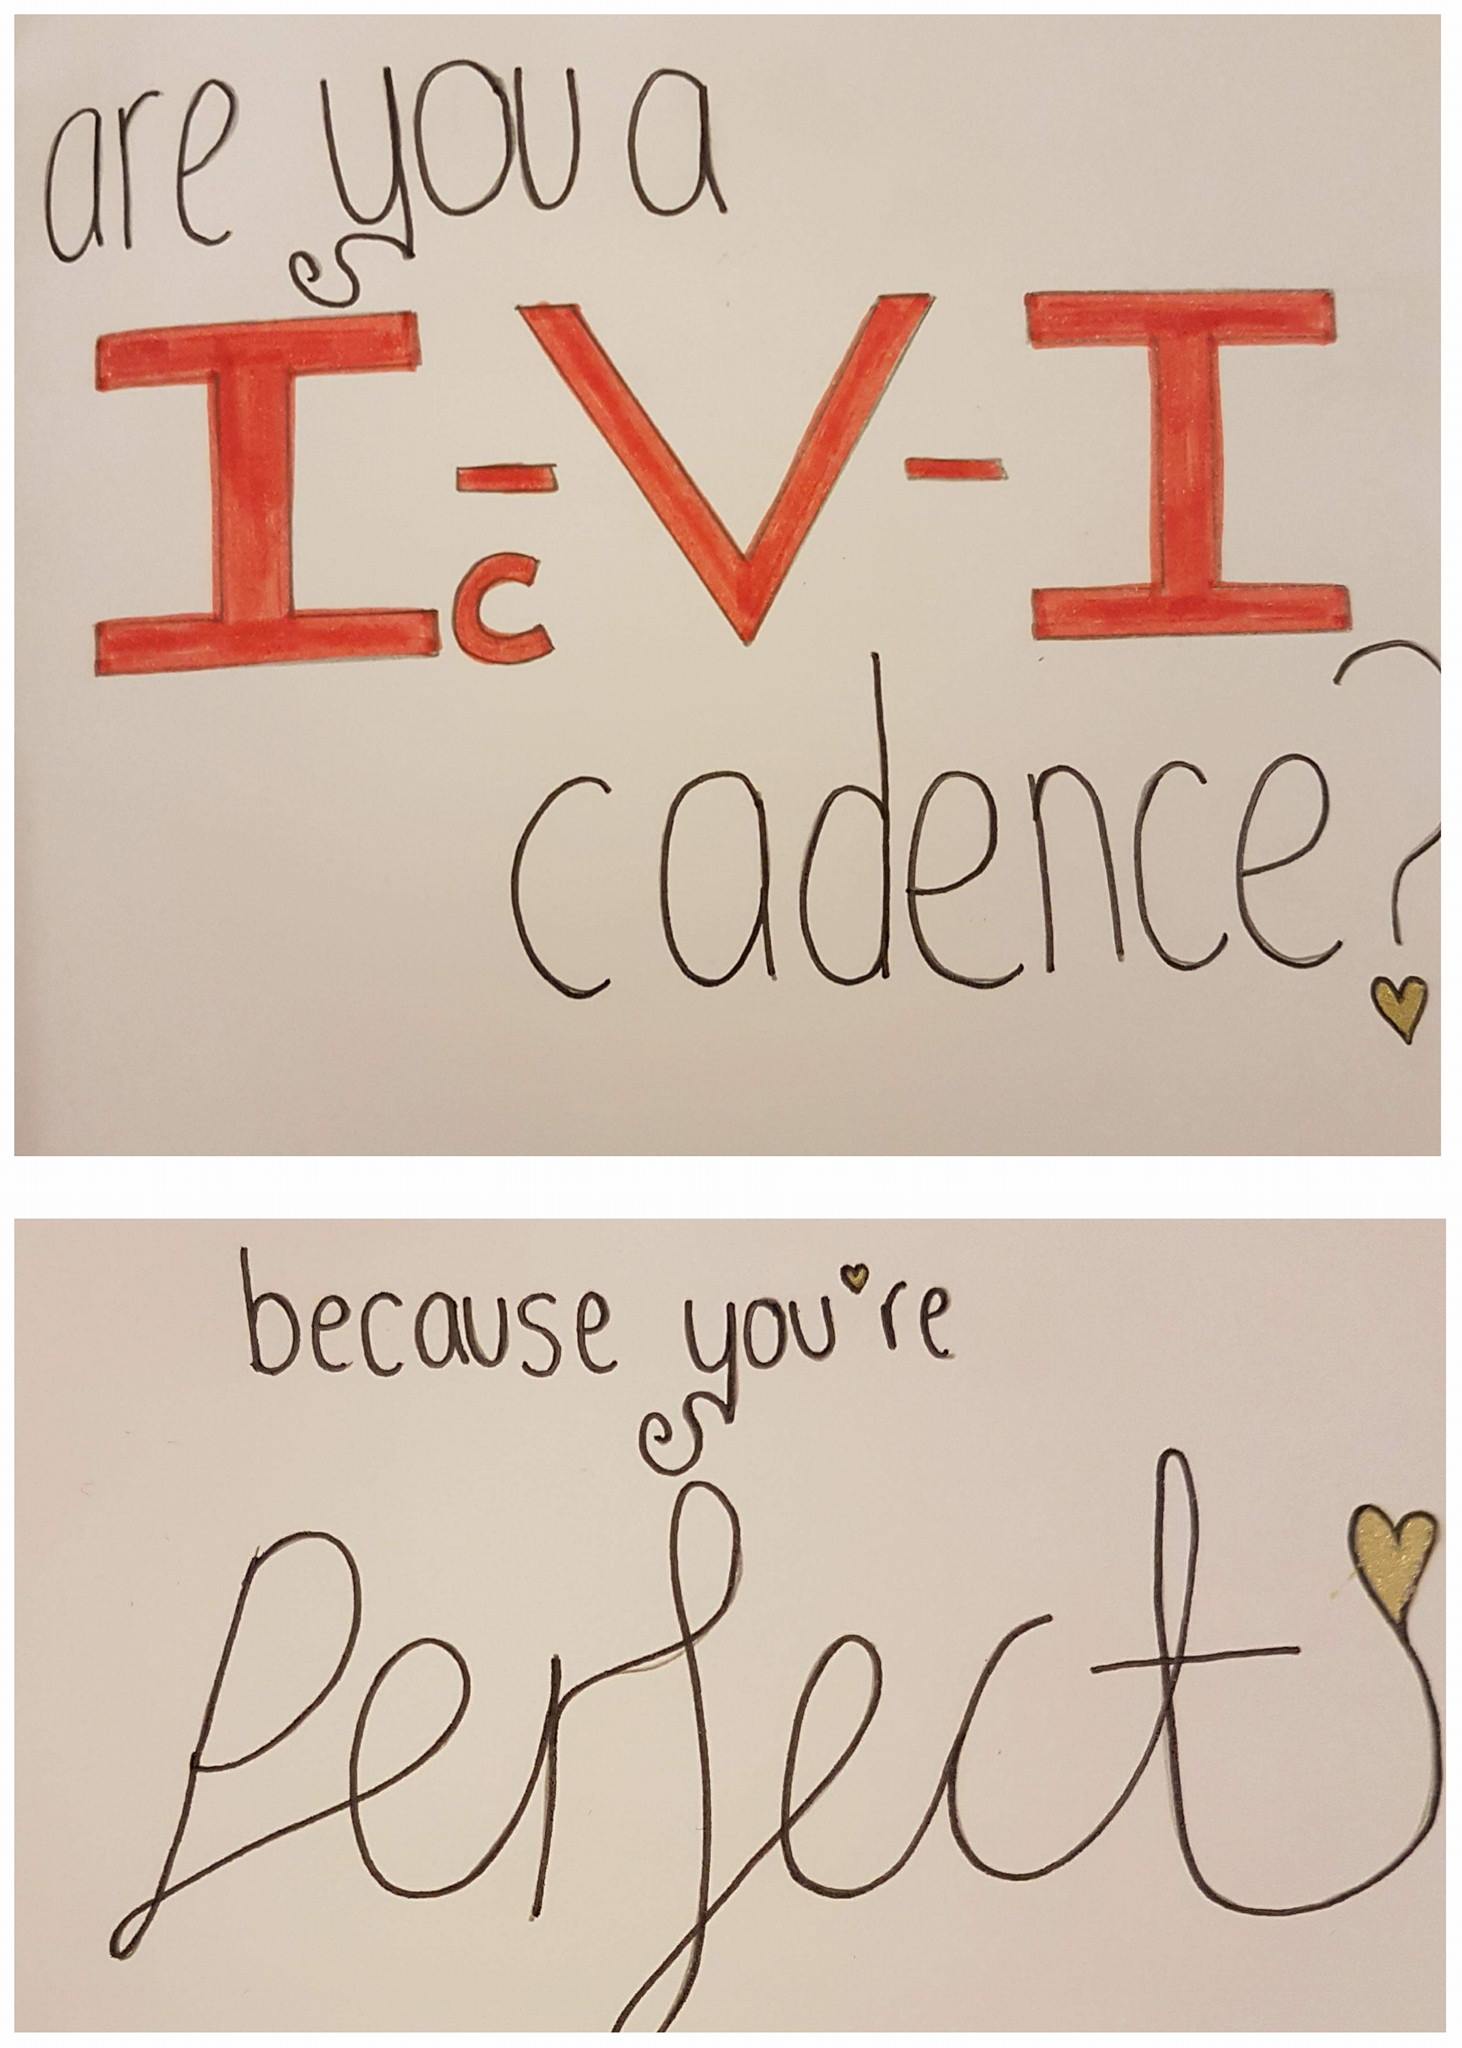 are you a
Ic-V-I
cadence?
because you're
Perfect